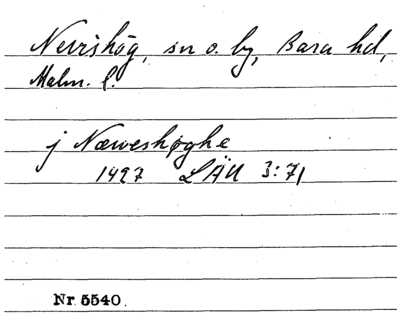 Nevishög, sn o. by, Bara hd,
Malm. l.
j Næweshøghe
1497 LÄU 3:71
Nr 5540